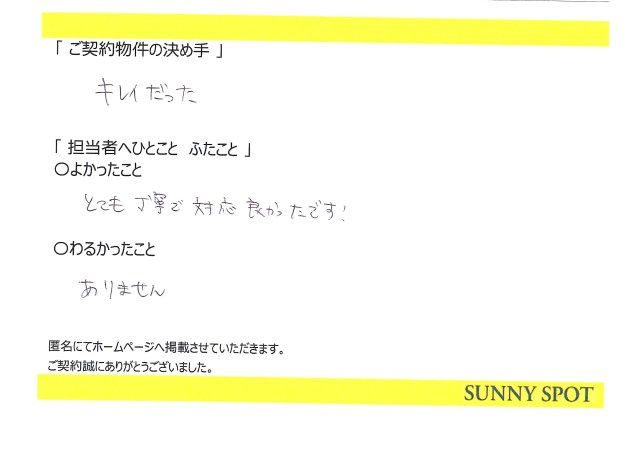 「 ご契約物件の決め手 」
キレイだった
「 担当者へひとこと ふたこと 」
〇よかったこと
とても丁寧で対応良かったです!
〇わるかったこと
ありません
匿名にてホームページへ掲載させていただきます。
ご契約誠にありがとうございました。
SUNNY SPOT